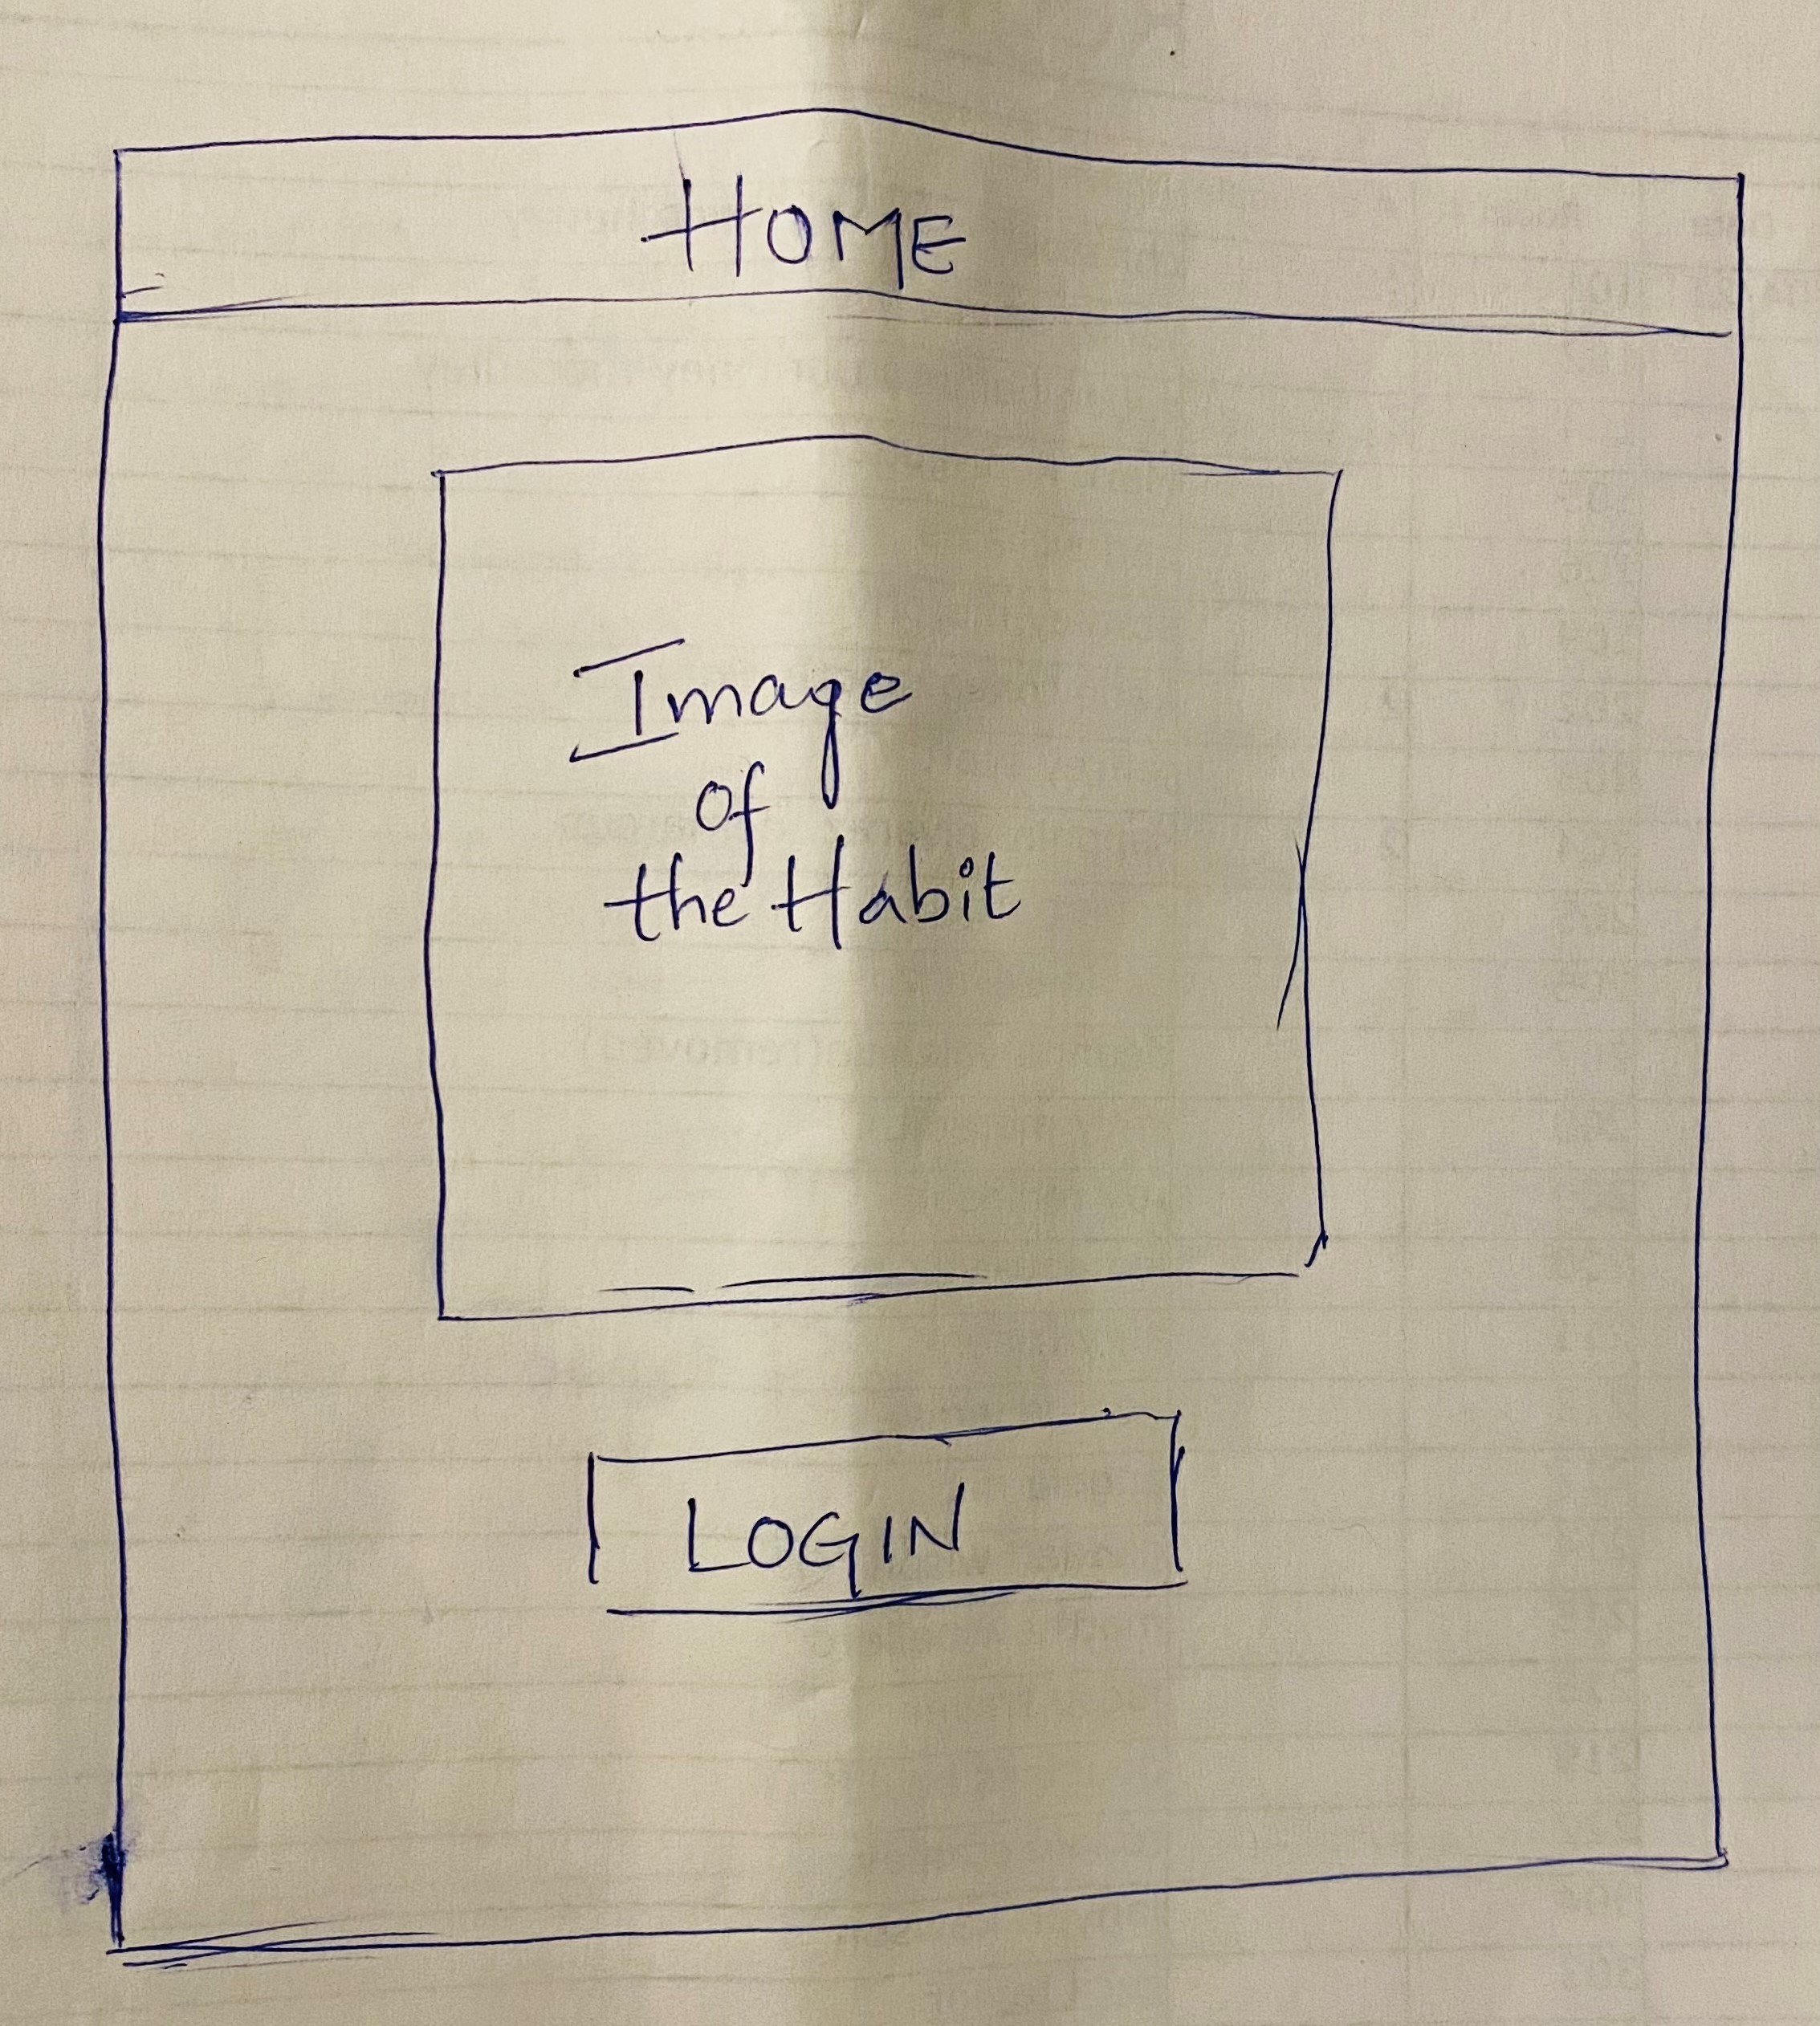 HOME
Image
of
the Habit
LOGIN